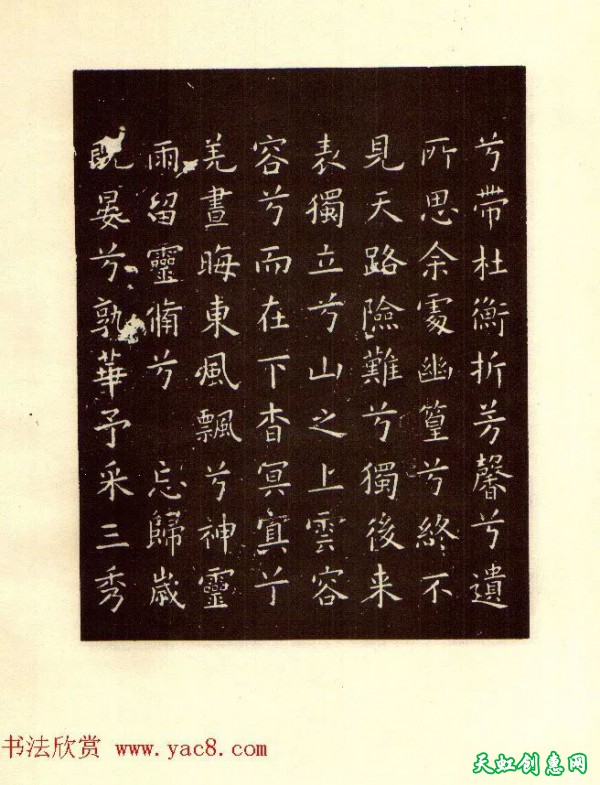 兮帶杜衡折芳馨兮遺
所思余處幽篁兮終不
見天路險難兮獨後来
表獨立兮山之上雲容
容兮而在下杳冥冥兮
羌晝晦東風飄兮神靈
雨留靈脩兮 忘歸歲
既晏兮孰華予采三秀
书法欣赏 www.yac8.com
天虹创惠网